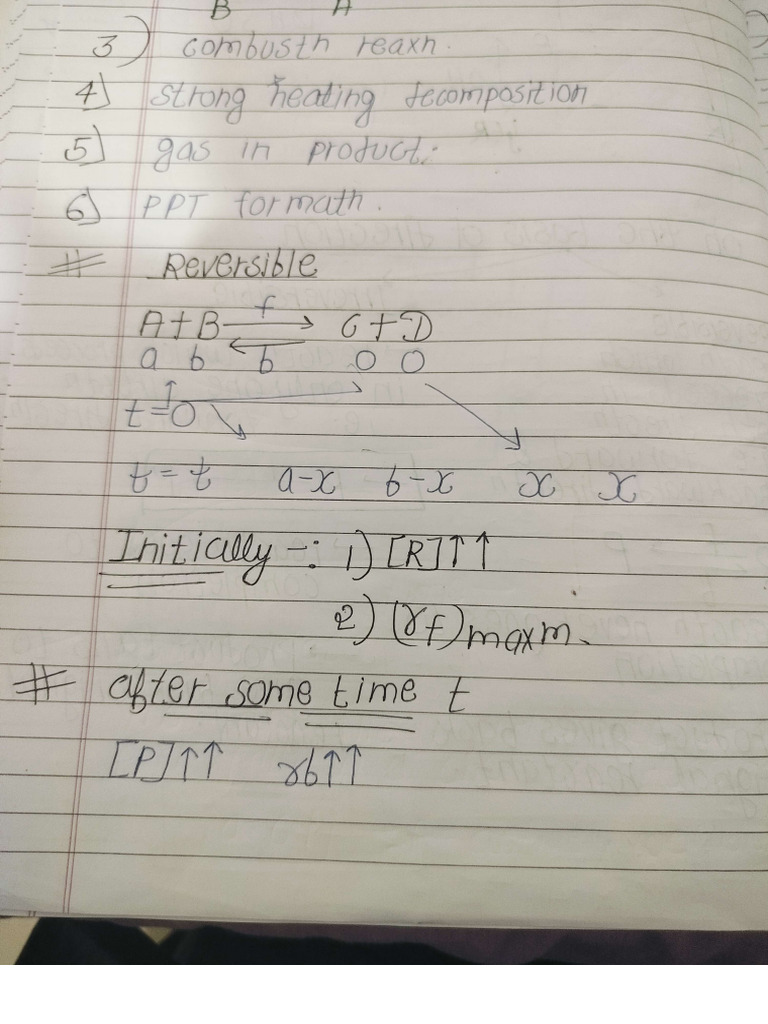 B A
3) combustn reaxn.
4) strong heating decomposition
5) gas in product.
6) PPT formath.
# Reversible
f
A+B ⇌ C+D
a b b 0 0
t=0
t=t a-x b-x x x
Initially -: 1) [R]↑↑
2) (rf)maxm.
# after some time t
[P]↑↑ rb↑↑